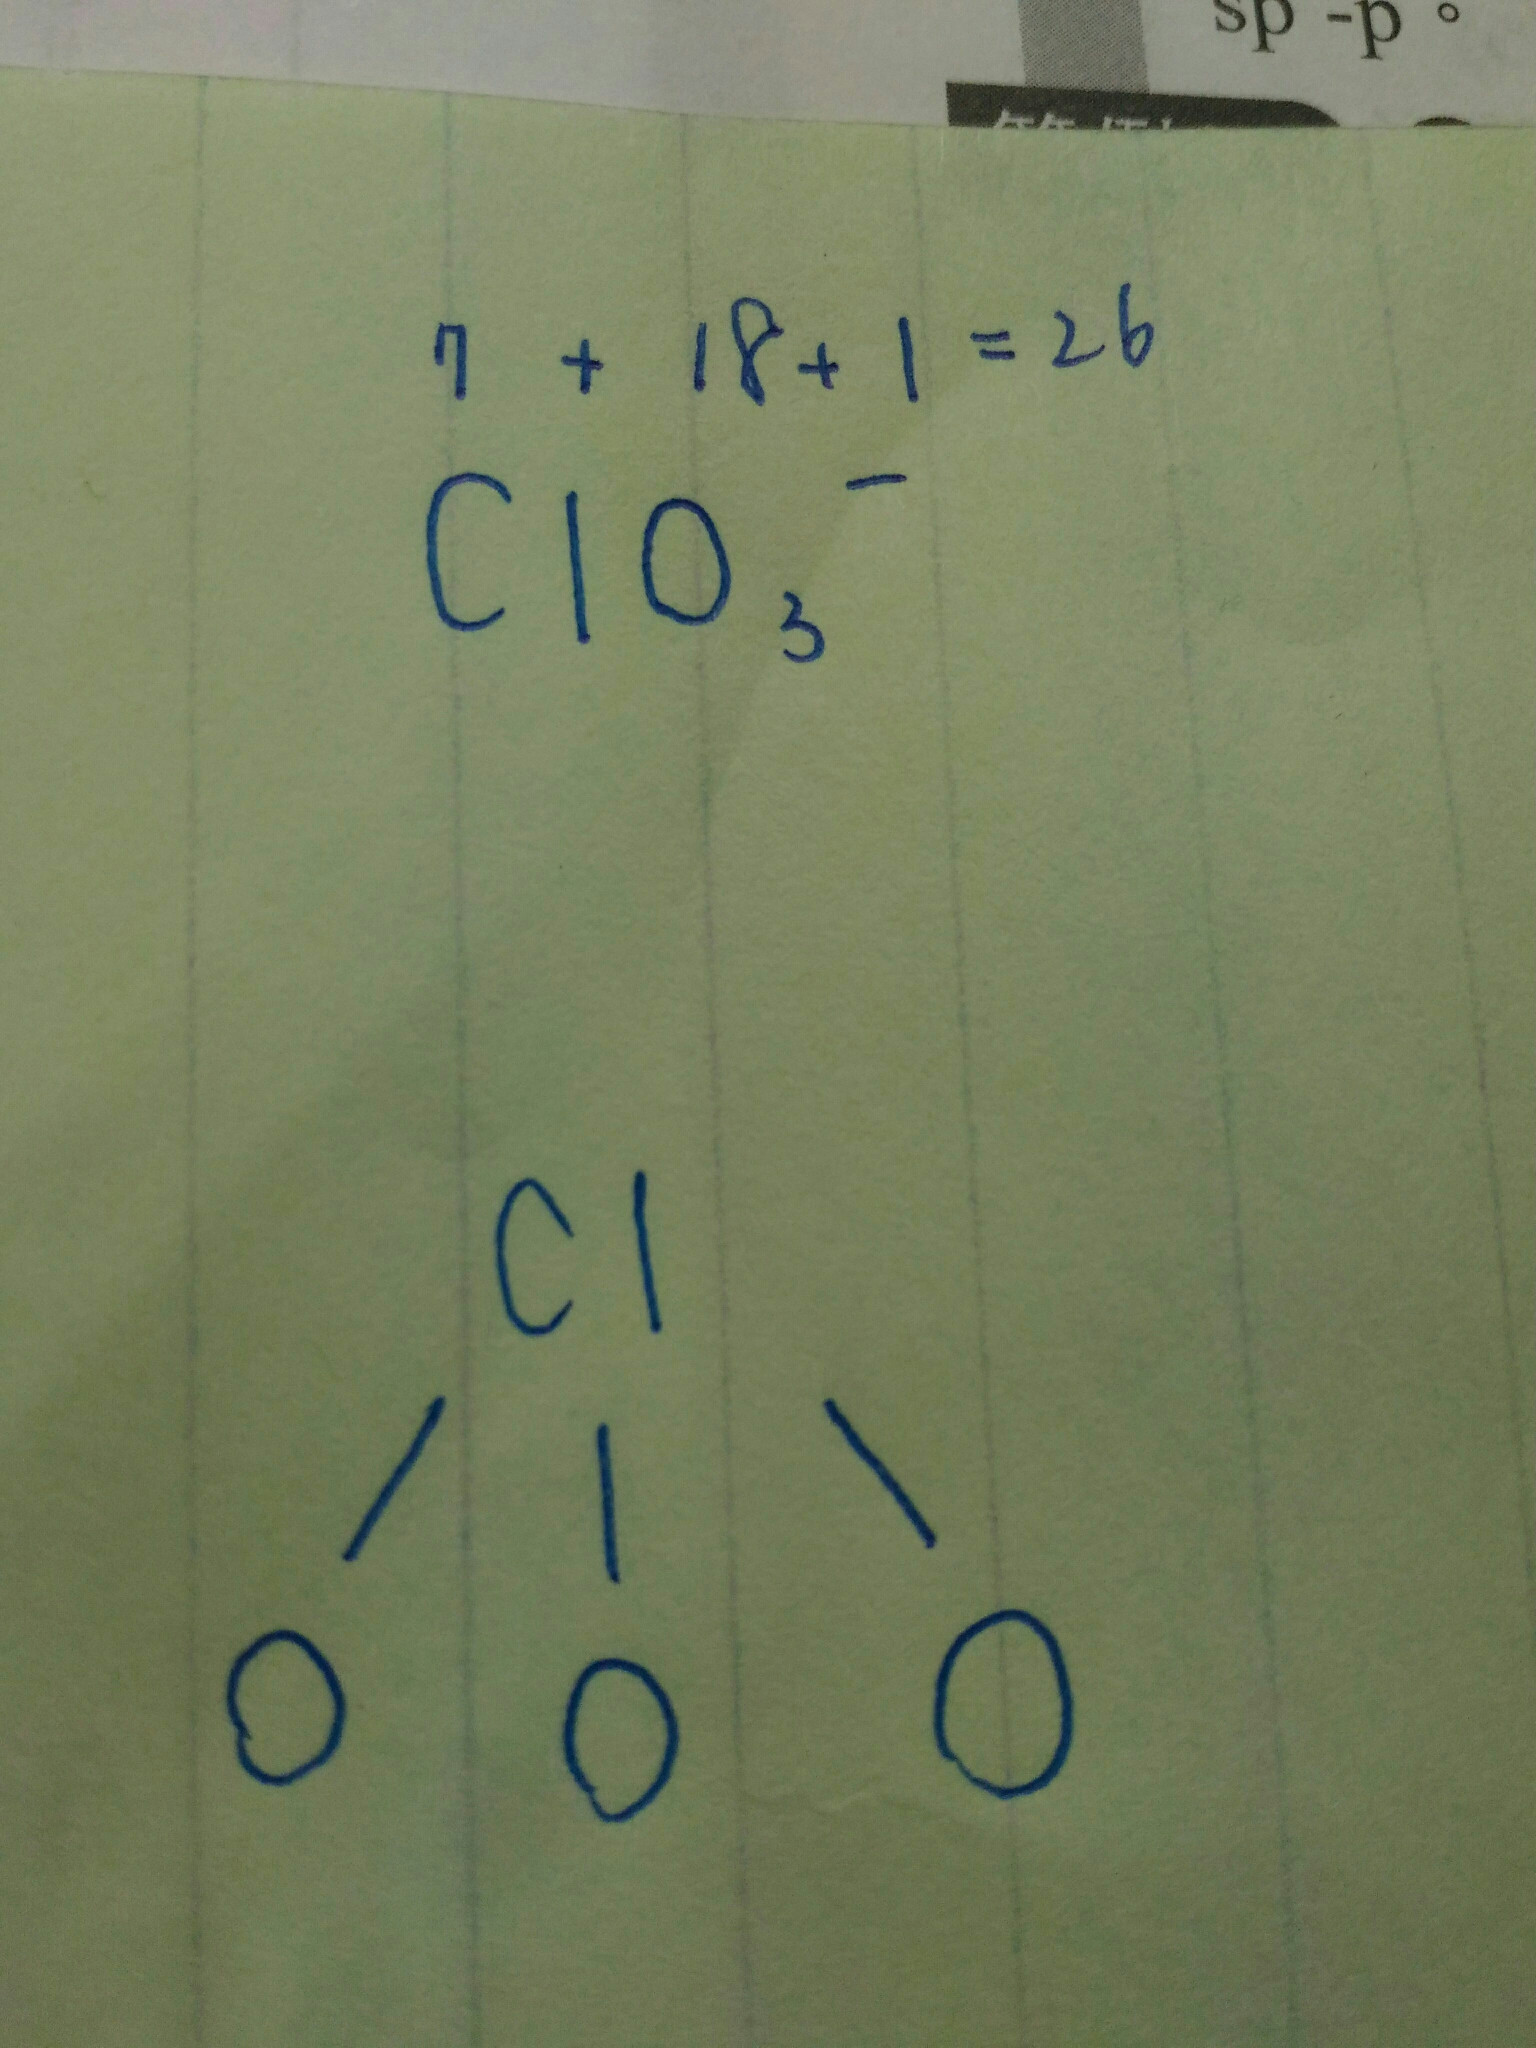 sp -p。
7 + 18 + 1 = 26
ClO₃⁻
Cl
O O O